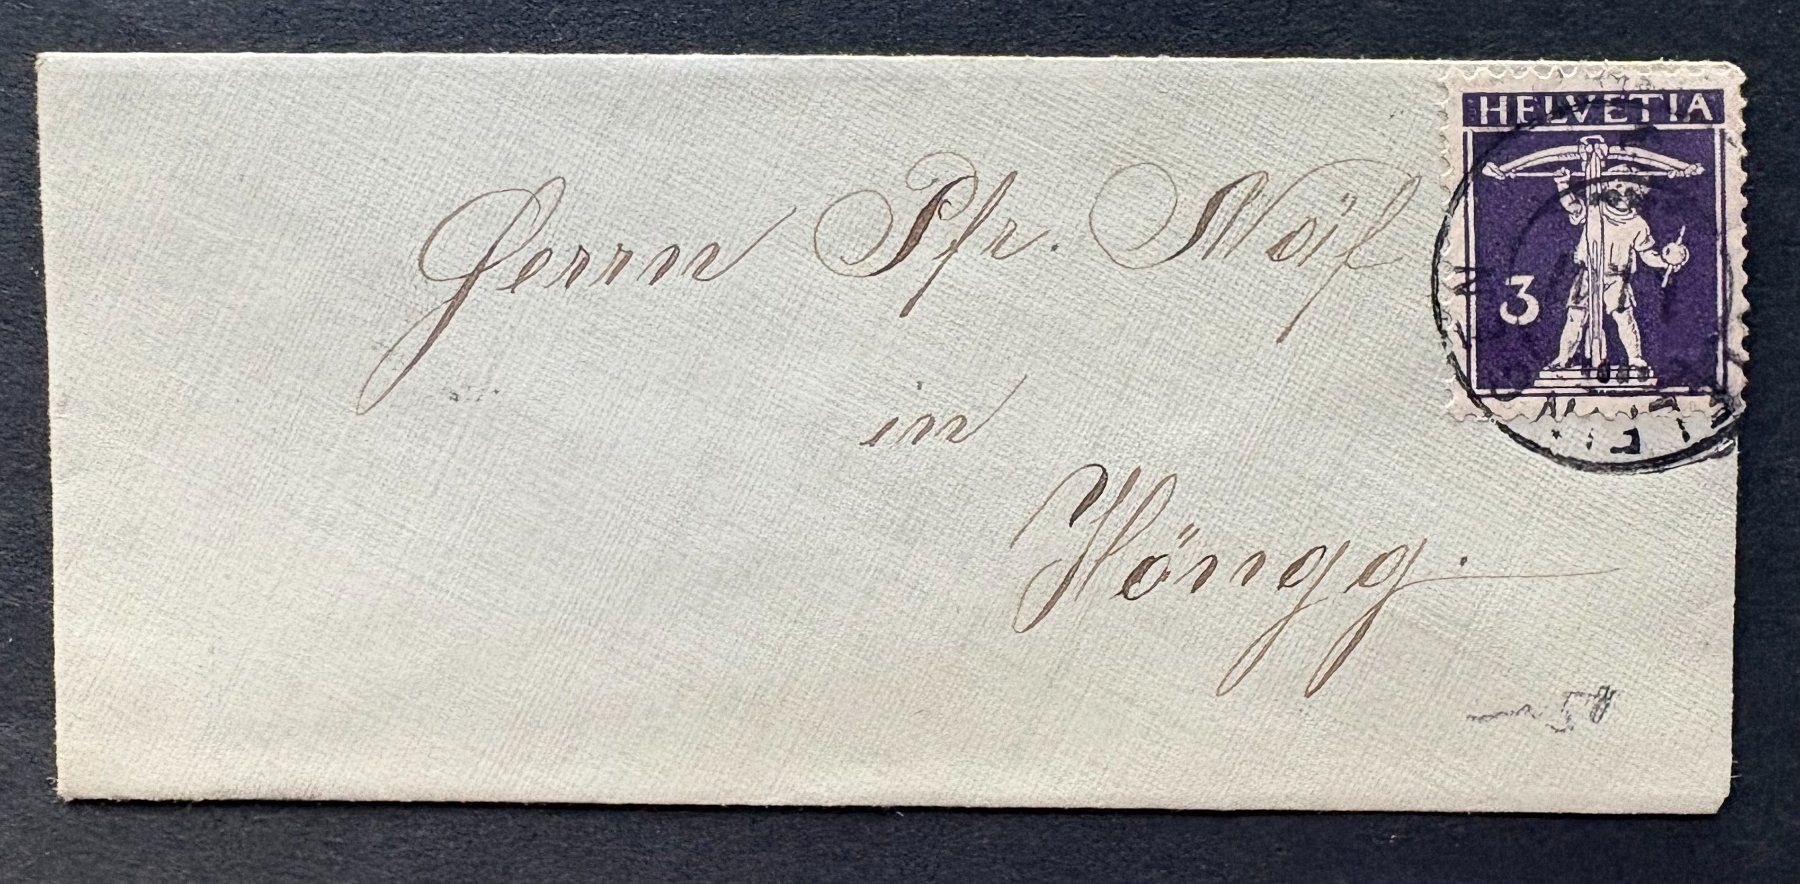 HELVETIA
3
Herrn Pfr. Näf
in
Höngg.